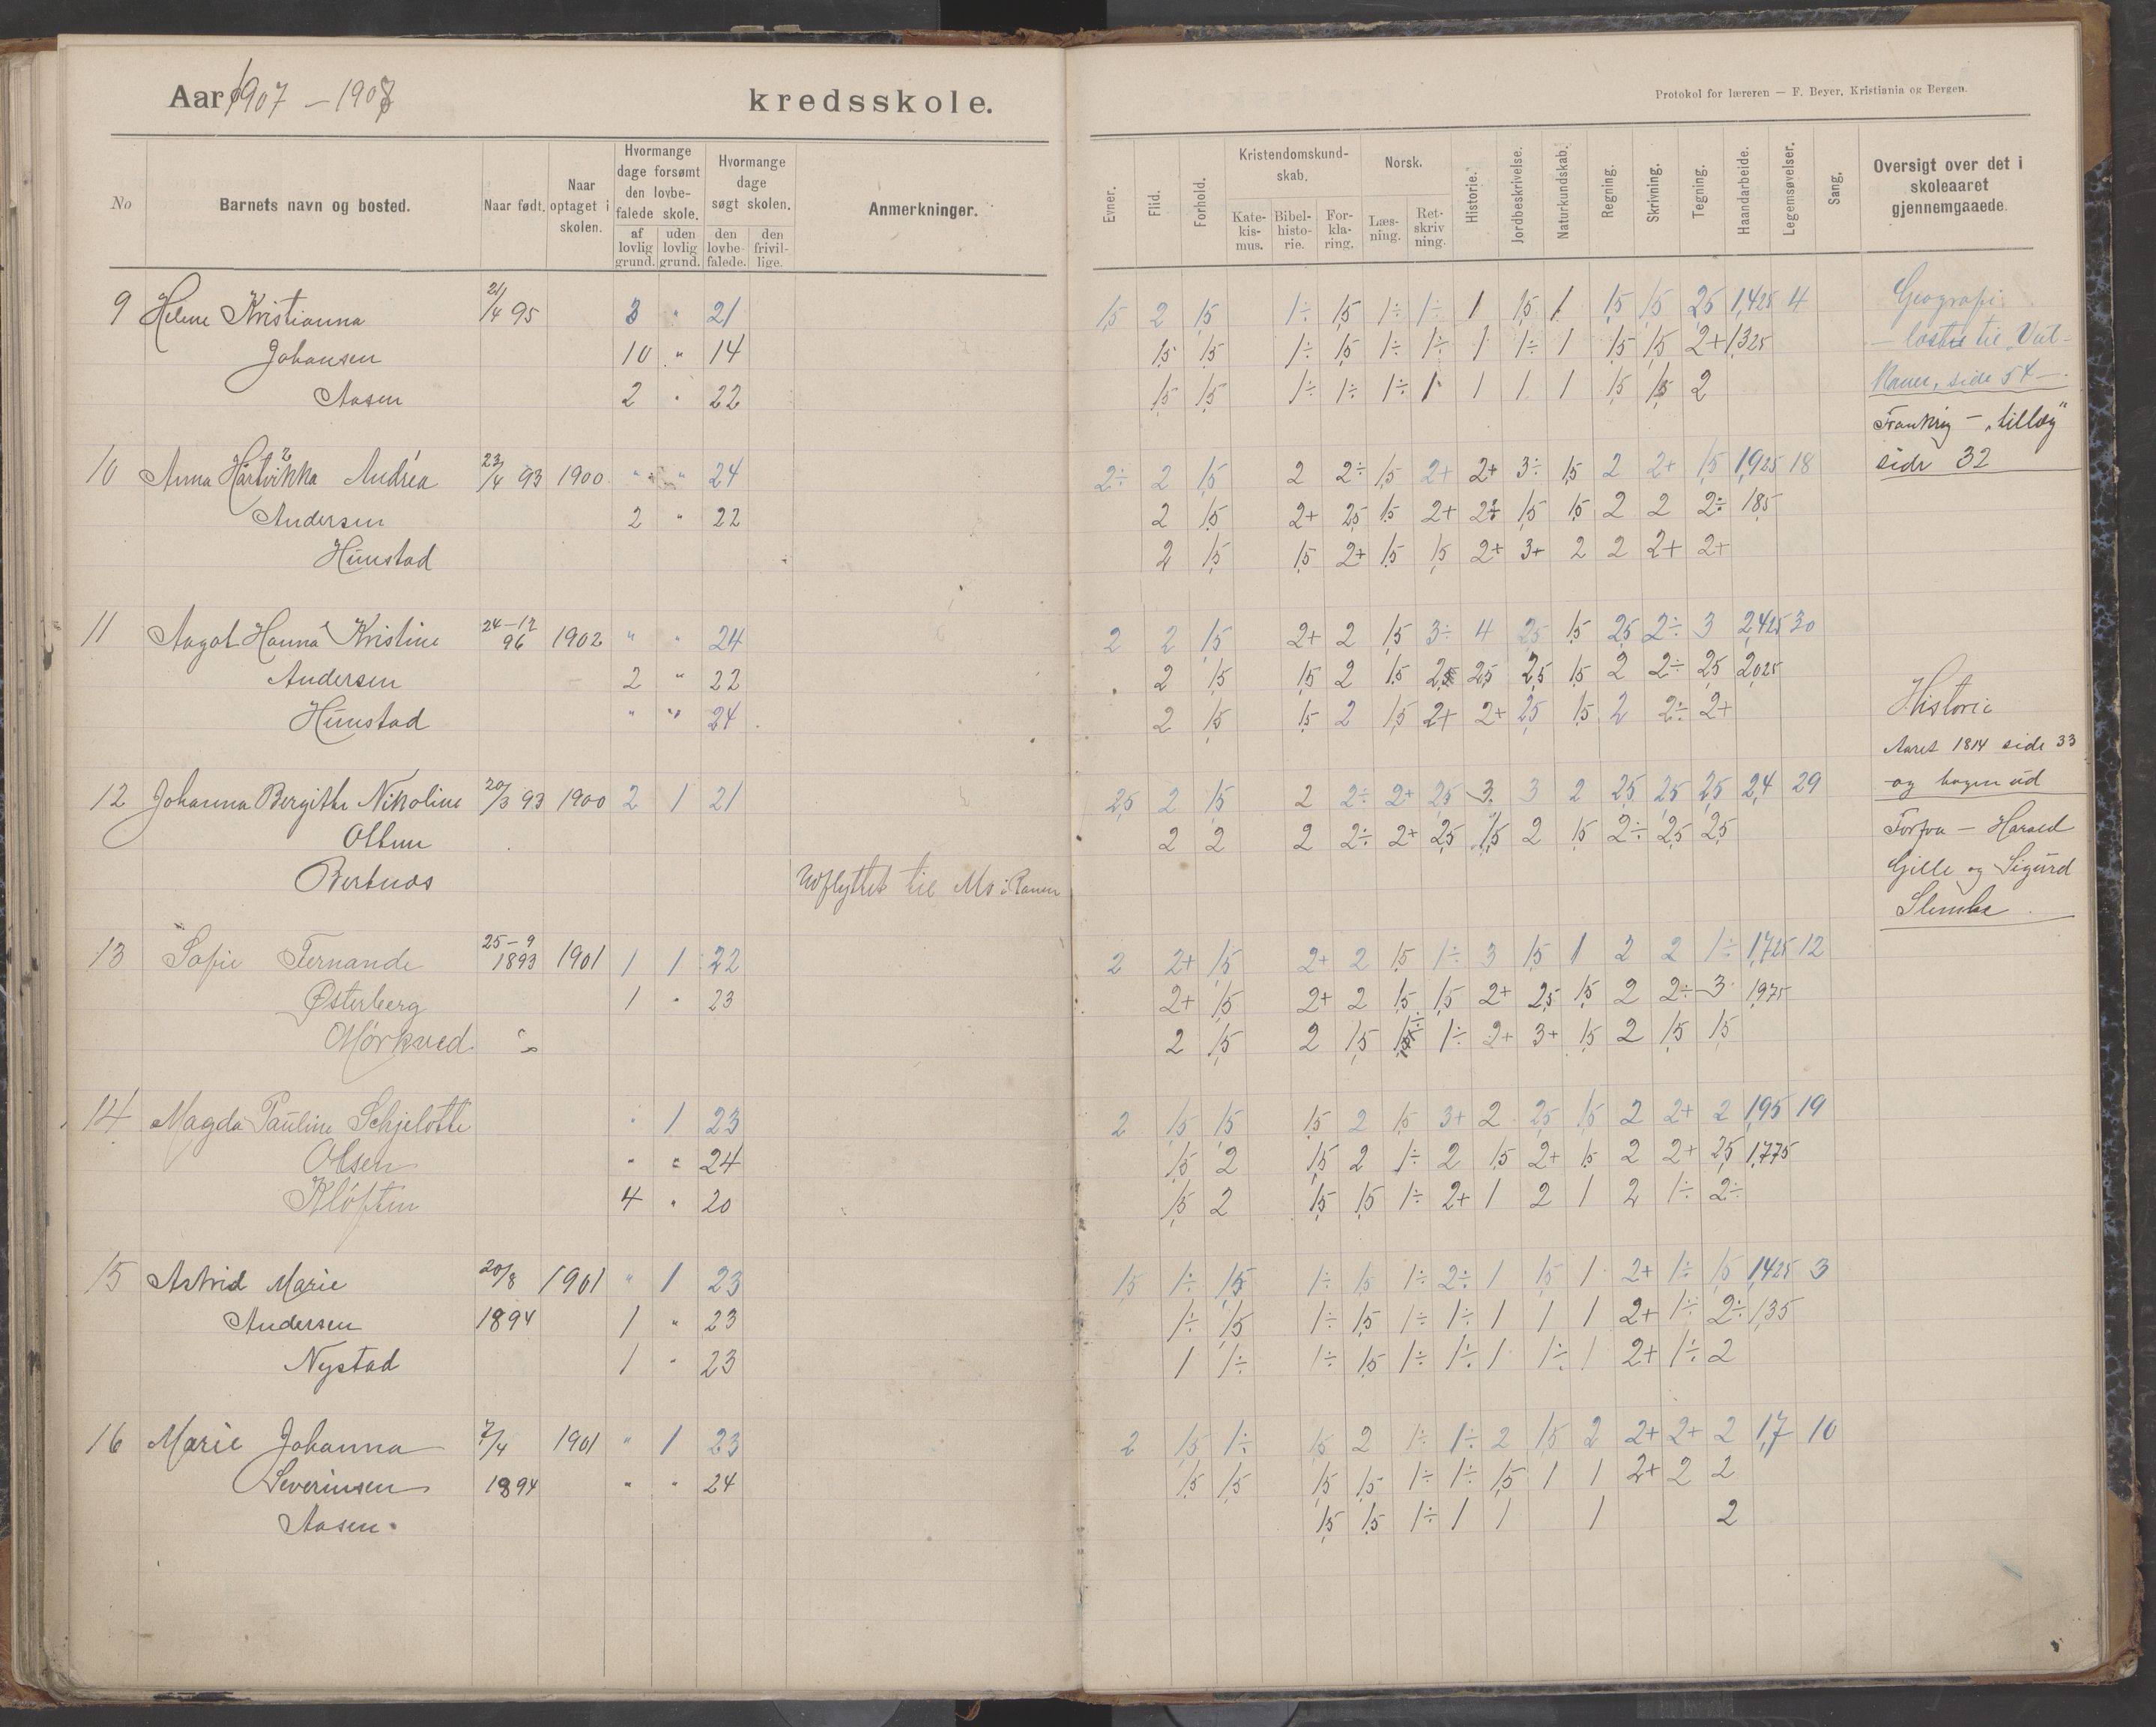 Aar 1907 – 1908 kredsskole.
Protokol for læreren — F. Beyer, Kristiania og Bergen.
No
Barnets navn og bosted.
Naar født.
Naar optaget i skolen.
Hvormange dage forsømt den lovbefalede skole.
af lovlig grund.
uden lovlig grund.
Hvormange dage søgt skolen.
den lovbefalede.
den frivillige.
Anmerkninger.
Evner.
Flid.
Forhold.
Kristendomskundskab.
Katekismus.
Bibelhistorie.
Forklaring.
Norsk.
Læsning.
Retskrivning.
Historie.
Jordbeskrivelse.
Naturkundskab.
Regning.
Skrivning.
Tegning.
Haandarbeide.
Legemsøvelser.
Sang.
Oversigt over det i skoleaaret gjennemgaaede.
9 Helene Kristianna 21/4 95 3 " 21 1,5 2 1,5 1÷ 1,5 1÷ 1÷ 1 1,5 1 1,5 1,5 2,5 1,425 4
Johansen 10 " 14 1,5 1,5 1÷ 1,5 1÷ 1÷ 1 1÷ 1 1,5 1,5 2+ 1,325
Aasen 2 " 22 1,5 1,5 1÷ 1÷ 1÷ 1 1 1 1 1,5 1,5 2
Geografi
side 54 —
Frankrig — "tillæg"
side 32
10 Anna Hartvikka Andréa 23/4 93 1900 " " 24 2÷ 2 1,5 2 2÷ 1,5 2+ 2+ 3÷ 1,5 2 2+ 1,5 1,925 18
Andersen 2 " 22 2 1,5 2+ 2,5 1,5 2+ 2÷ 1,5 1,5 2 2 2÷ 1,85
Hunstad 2 1,5 1,5 2+ 1,5 1,5 2+ 3+ 2 2 2+ 2+
11 Aagot Hanna Kristine 24-12 96 1902 " " 24 2 2 1,5 2+ 2 1,5 3÷ 4 2,5 1,5 2,5 2÷ 3 2,425 30
Andersen 2 " 22 2 1,5 1,5 2 1,5 2,5 2,5 2,5 1,5 2 2÷ 2,5 2,025
Hunstad " " 24 2 1,5 1,5 2 1,5 2+ 2+ 2,5 1,5 2 2÷ 2+
Historie
Aaret 1814 side 33
og bogen ud
12 Johanna Bergitte Nikoline 20/3 93 1900 2 1 21 2,5 2 1,5 2 2÷ 2+ 2,5 3 3 2 2,5 2,5 2,5 2,4 29
Olsen 2 2 2 2÷ 2+ 2,5 1,5 2 1,5 2÷ 2,5 2,5
Bertnes Udflyttet til Mo i Ranen
Forfra — Harald
Gille og Sigurd
Slembe
13 Sofie Fernande 25-9 1893 1901 1 1 22 2 2+ 1,5 2+ 2 1,5 1÷ 3 1,5 1 2 2 1÷ 1,725 12
Østerberg 1 " 23 2+ 1,5 2+ 2 1,5 1,5 2+ 2,5 1,5 2 2÷ 3 1,975
Mørkved 2 1,5 2 1,5 1÷ 1÷ 2+ 3+ 1,5 2 1,5 1,5
14 Magda Pauline Schjelotte " 1 23 2 1,5 1,5 1,5 2 1,5 3+ 2 2,5 1,5 2 2+ 2 1,95 19
Olsen " " 24 1,5 2 1,5 2 1÷ 2 1,5 2+ 1,5 2 2+ 2,5 1,775
Kløften 4 " 20 1,5 2 1,5 1,5 1÷ 2+ 1 2 1 2 1÷ 2÷
15 Astrid Marie 20/8 1901 " 1 23 1,5 1÷ 1,5 1÷ 1,5 1÷ 2÷ 1 1,5 1 2+ 1÷ 1,5 1,425 3
Andersen 1894 1 " 23 1÷ 1,5 1÷ 1,5 1÷ 1÷ 1 1 1 2+ 1÷ 2÷ 1,35
Nystad 1 " 23 1 1÷ 1÷ 1,5 1÷ 1÷ 1 1÷ 1 2+ 1÷ 2
16 Marie Johanna 7/4 1901 " 1 23 2 1,5 1÷ 1,5 2 1÷ 1÷ 2 1,5 2 2+ 2+ 2 1,7 10
Severinsen 1894 " " 24 1,5 1,5 1,5 1,5 1÷ 1÷ 1,5 1 1 2+ 2 2
Aasen 1,5 1,5 1÷ 1 1 1 2